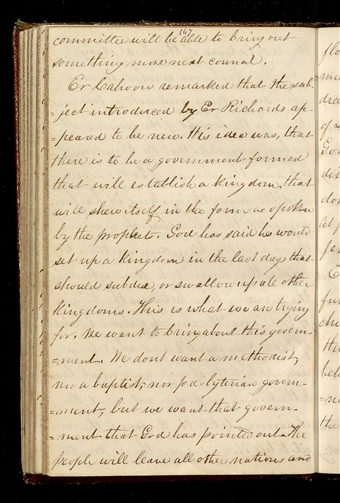 167
committee will be able to bring out
something more next council.
Er Cahoon remarked that the sub-
-ject introduced by Er Richards ap-
-peared to be new. His idea was, that
there is to be a government formed
that will establish a kingdom, that
will shew itself in the form as spoken
by the prophets. God has said he would
set up a kingdom in the last days that
should subdue, or swallow up all other
kingdoms. This is what we are trying
for. We want to bring about this govern-
-ment. We dont want a methodist,
nor a baptist, nor presbyterian govern-
-ment, but we want that govern-
-ment that God has pointed out. The
people will leave all other nations and